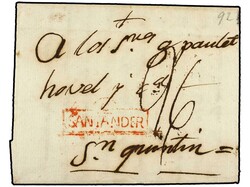 92
A los Sres g paulet
hovel y
SANTANDER
16
Sn quintin =